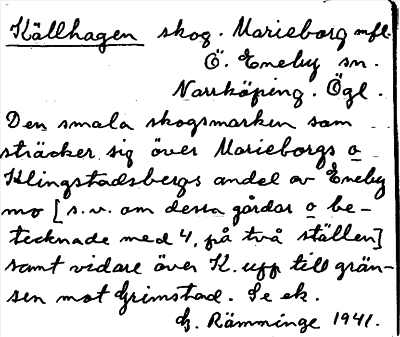 Källhagen skog. Marieborg mfl.
Ö. Eneby sn.
Norrköping. Ögl.
Den smala skogsmarken som
sträcker sig över Marieborgs o
Klingstadsbergs andel av Eneby
mo [s.v. om dessa gårdar o be-
tecknade med 4, på två ställen]
samt vidare över K. upp till grän-
sen mot Grimstad. Se ek.
G. Rämminge 1941.